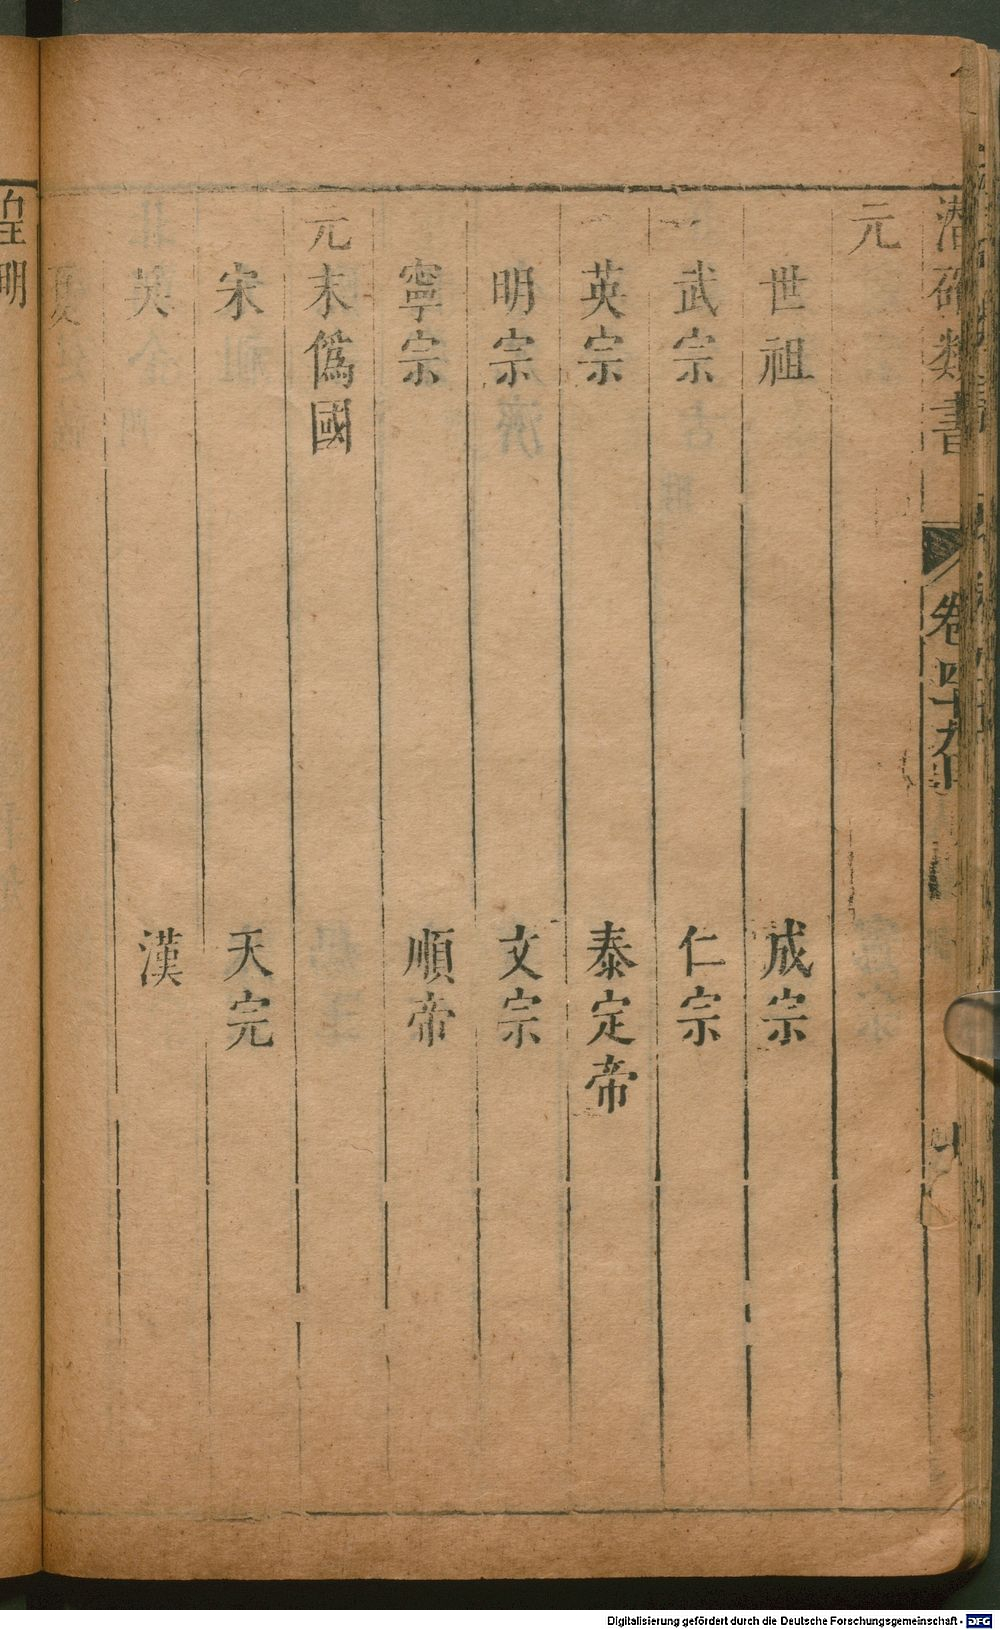 潛確類書
卷四十九
元
世祖 成宗
武宗 仁宗
英宗 泰定帝
明宗 文宗
寧宗 順帝
元末僞國
宋 天完
吳 漢
夏
皇明
Digitalisierung gefördert durch die Deutsche Forschungsgemeinschaft - DFG